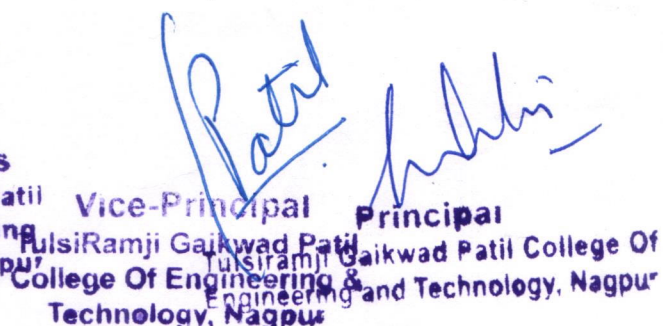 Patil
s
atil
ng
pur
Vice-Principal
TulsiRamji Gaikwad Patil
College Of Engineering &
Technology, Nagpur
Principal
Tulsiramji Gaikwad Patil College Of
Engineering and Technology, Nagpur